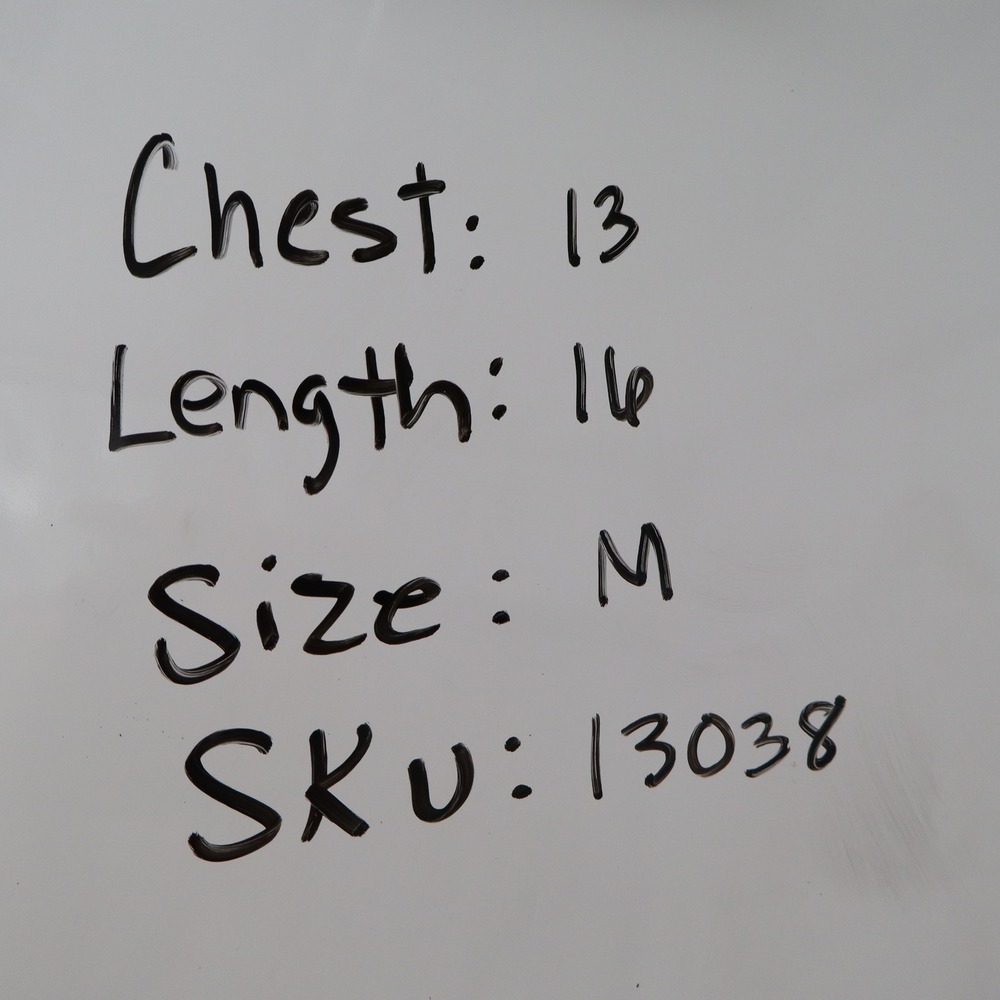 Chest: 13
Length: 16
Size: M
SKU: 13038